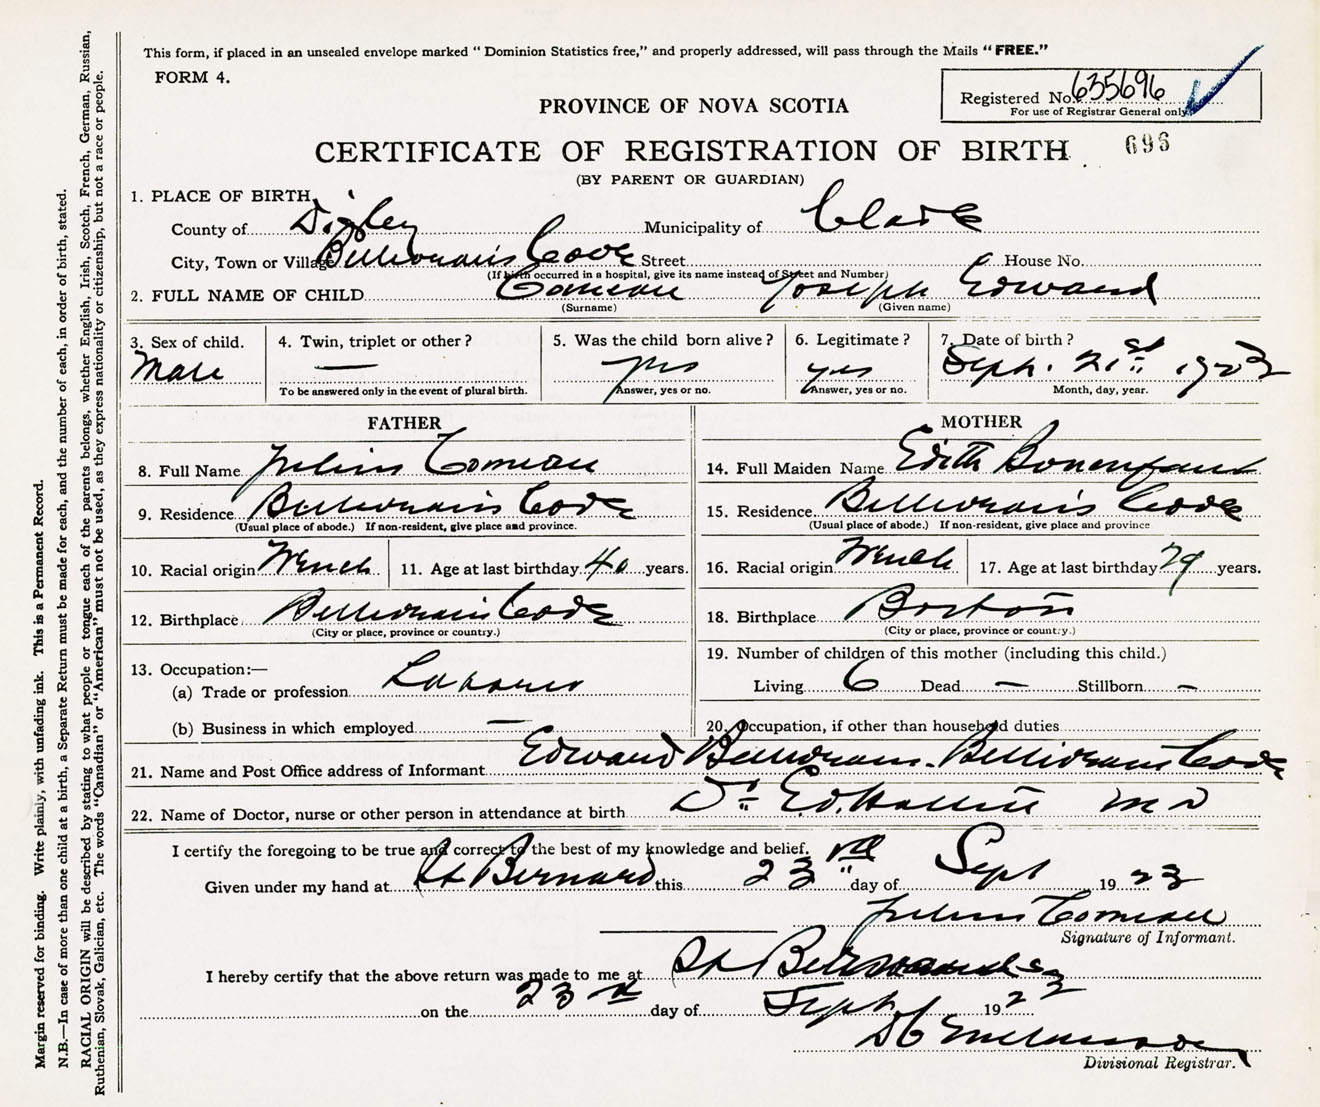 This form, if placed in an unsealed envelope marked " Dominion Statistics free," and properly addressed, will pass through the Mails " FREE."
FORM 4.
Registered No. 635696
For use of Registrar General only
PROVINCE OF NOVA SCOTIA
CERTIFICATE OF REGISTRATION OF BIRTH
696
(BY PARENT OR GUARDIAN)
1. PLACE OF BIRTH,
County of Digby Municipality of Clare
City, Town or Village Belliveau's Cove Street House No.
(If birth occurred in a hospital, give its name instead of Street and Number)
2. FULL NAME OF CHILD Comeau Joseph Edward
(Surname) (Given name)
3. Sex of child. 4. Twin, triplet or other? 5. Was the child born alive? 6. Legitimate? 7. Date of birth?
Male — yes yes Sept. 21st 1923
To be answered only in the event of plural birth. Answer, yes or no. Answer, yes or no. Month, day, year.
FATHER MOTHER
8. Full Name Julius Comeau 14. Full Maiden Name Edith Bonenfant
9. Residence Belliveau's Cove 15. Residence Belliveau's Cove
(Usual place of abode.) If non-resident, give place and province. (Usual place of abode.) If non-resident, give place and province
10. Racial origin French 11. Age at last birthday 40 years. 16. Racial origin French 17. Age at last birthday 29 years.
12. Birthplace Belliveau's Cove 18. Birthplace Boston
(City or place, province or country.) (City or place, province or country.)
13. Occupation:— 19. Number of children of this mother (including this child.)
(a) Trade or profession Laborer Living 6 Dead — Stillborn —
(b) Business in which employed — 20. Occupation, if other than household duties
21. Name and Post Office address of Informant Edward Belliveau. Belliveau's Cove
22. Name of Doctor, nurse or other person in attendance at birth Dr M D
I certify the foregoing to be true and correct to the best of my knowledge and belief.
Given under my hand at St Bernard this 23rd day of Sept 1923
Julius Comeau
Signature of Informant.
I hereby certify that the above return was made to me at St Bernard
on the 23rd day of Sept 1923
Divisional Registrar.
Margin reserved for binding. Write plainly, with unfading ink. This is a Permanent Record.
N.B.—In case of more than one child at a birth, a Separate Return must be made for each, and the number of each, in order of birth, stated.
RACIAL ORIGIN will be described by stating to what people or tongue each of the parents belongs, whether English, Irish, Scotch, French, German, Russian,
Ruthenian, Slovak, Galician, etc. The words "Canadian" or "American" must not be used, as they express nationality or citizenship, but not a race or people.